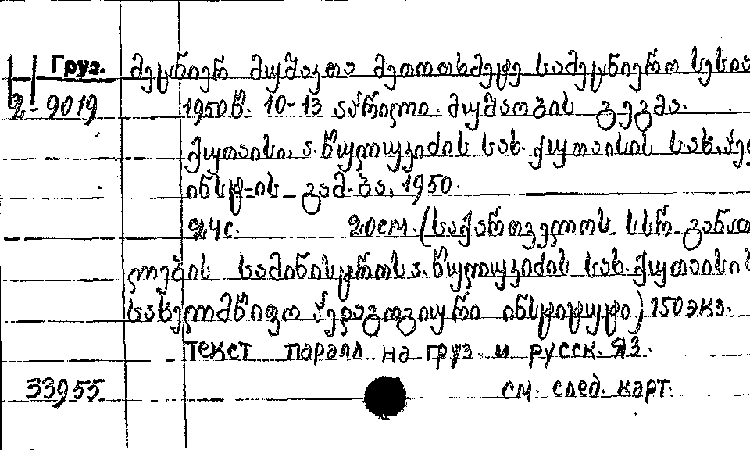 Груз. მეცნიერ მუშაკთა მეთოთხმეტე სამეცნიერო სესია
2-9019 1950წ. 10-13 აპრილი. მუშაობის გეგმა.
ქუთაისი, ა. წულუკიძის სახ. ქუთაისის სახ. პედ
ინსტ-ის გამ-ბა, 1950.
24с. 20см. (საქართველოს სსრ განათ
ლების სამინისტრო ა. წულუკიძის სახ. ქუთაისის
სახელმწიფო პედაგოგიური ინსტიტუტი) 150 экз.
текст паралл. на груз. и русск. яз.
33955 см. след. карт.